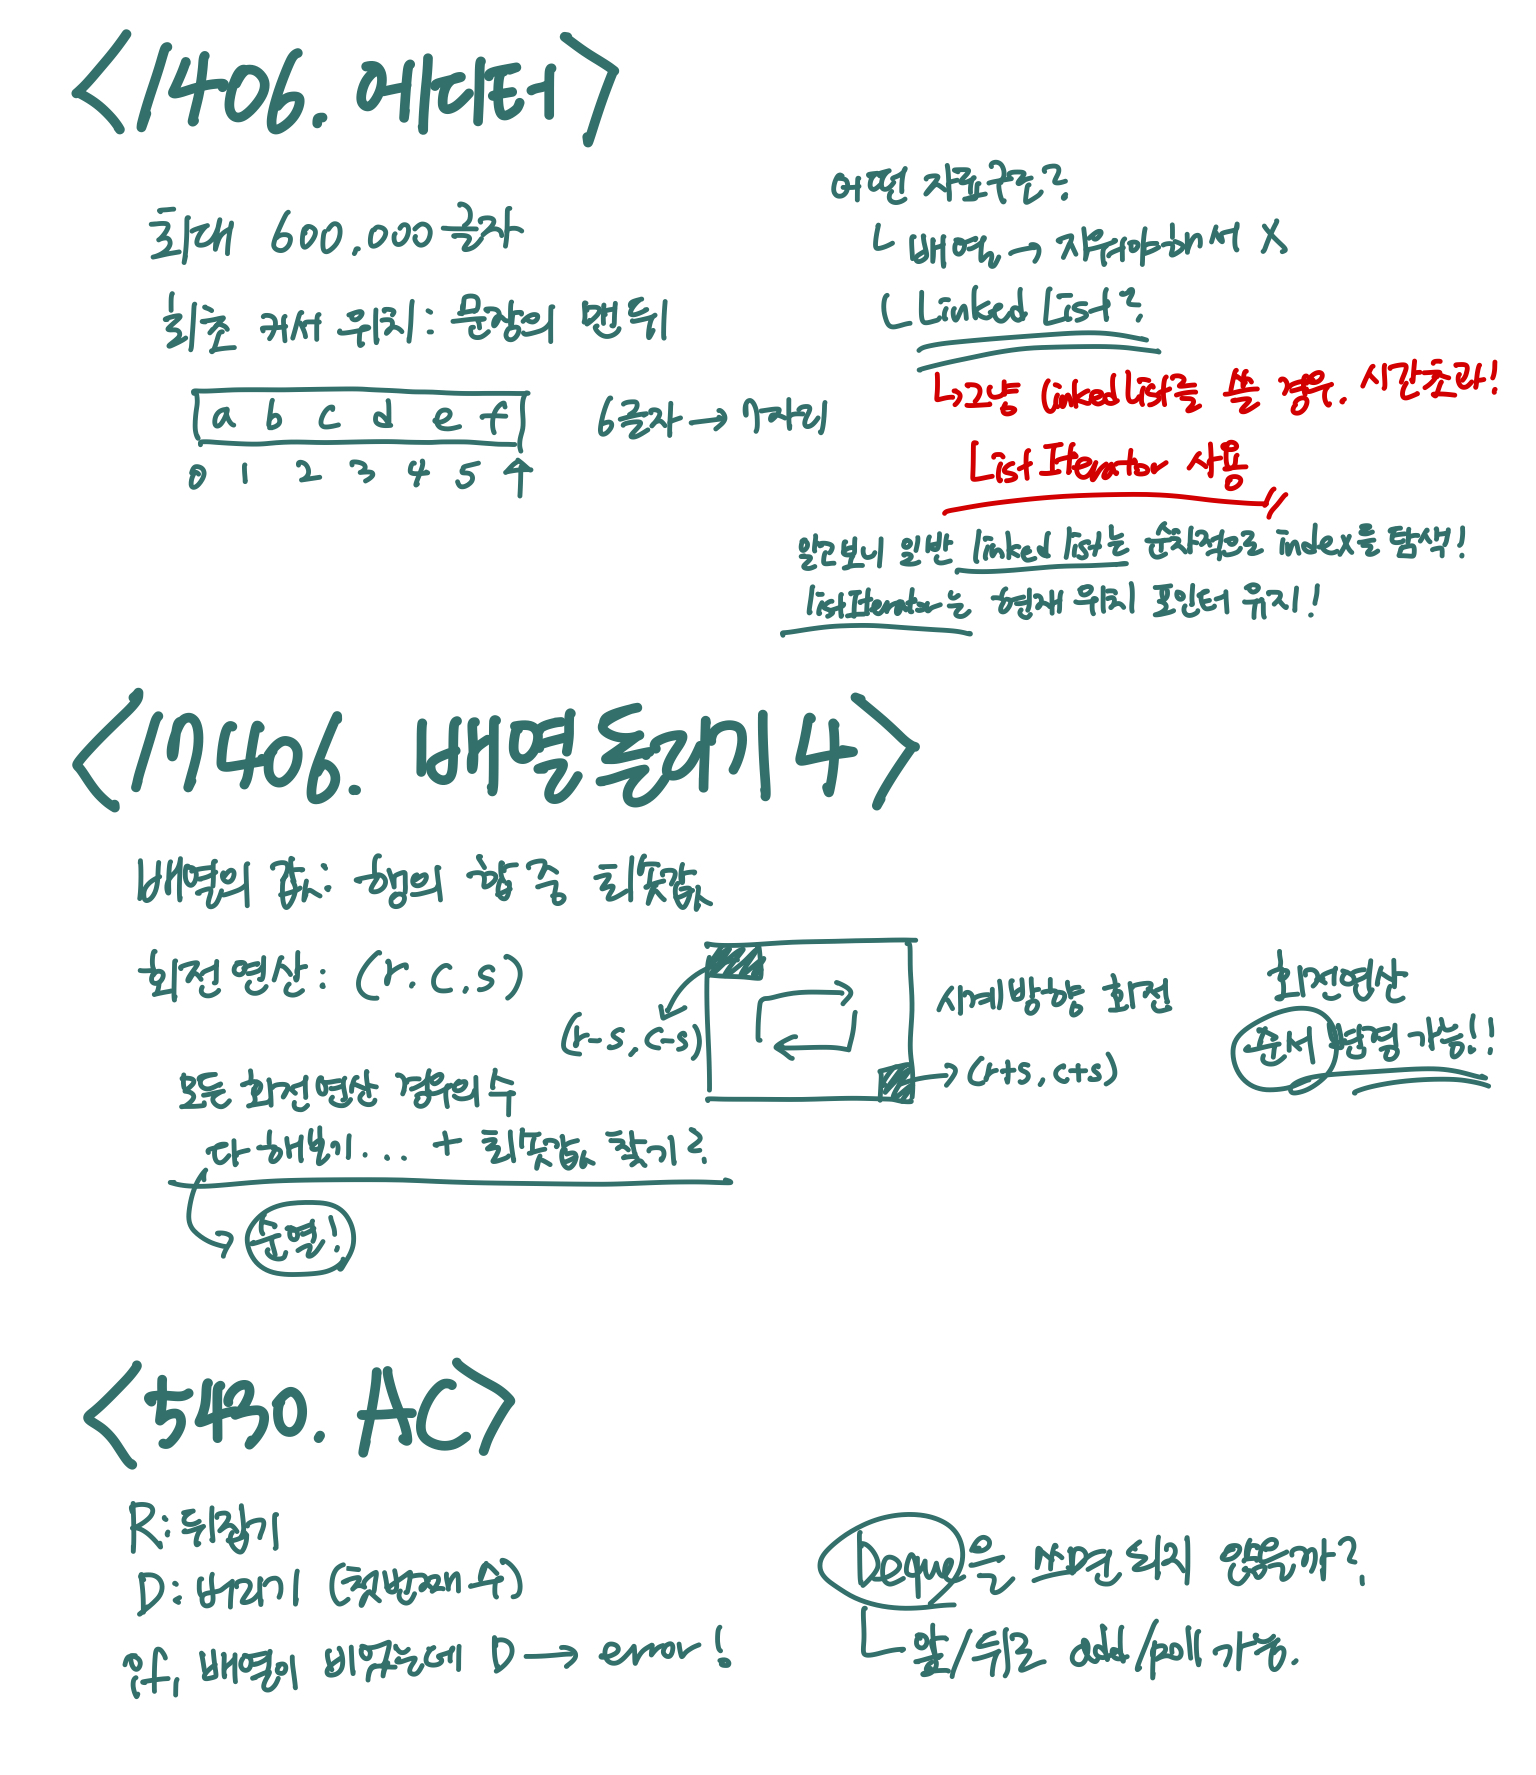 <1406. 에디터>
최대 600,000글자
최초 커서 위치: 문장의 맨 뒤
a b c d e f
0 1 2 3 4 5 ↑
6글자 → 7자리
어떤 자료구조?
배열 → 지워야해서 X
Linked List?
그냥 linked list를 쓸 경우, 시간초과!
List Iterator 사용
알고보니 일반 linked list는 순차적으로 index를 탐색!
listIterator는 현재 위치 포인터 유지!
<17406. 배열 돌리기 4>
배열의 값: 행의 합 중 최솟값
회전 연산: (r, c, s)
(r-s, c-s)
시계방향 회전
(r+s, c+s)
회전연산
순서 변경 가능!!
모든 회전연산 경우의 수
다 해보기... + 최솟값 찾기?
순열!
<5430. AC>
R: 뒤집기
D: 버리기 (첫번째 수)
if, 배열이 비었는데 D → error!
Deque을 쓰면 되지 않을까?
앞/뒤로 add/poll 가능.